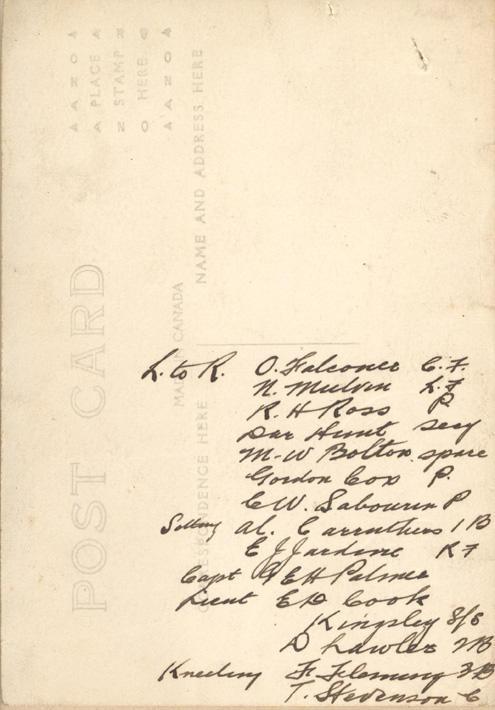 POST CARD
CORRESPONDENCE HERE
MADE IN CANADA
NAME AND ADDRESS HERE
PLACE
STAMP
HERE
L. to R. O. Falconer C. F.
N. Mulvin L. F
R. H Ross P.
Dar Hunt secy
M-W Bolton spare
Gordon Cox P.
C W. Sabourin P
Sitting Al. Carruthers 1 B
E J Jardine R F
Capt G E H Palmer
Lieut E D Cook
Kingsley S/S
D Lawler 2B
Kneeling F. Fleming 3B
T. Stevenson C